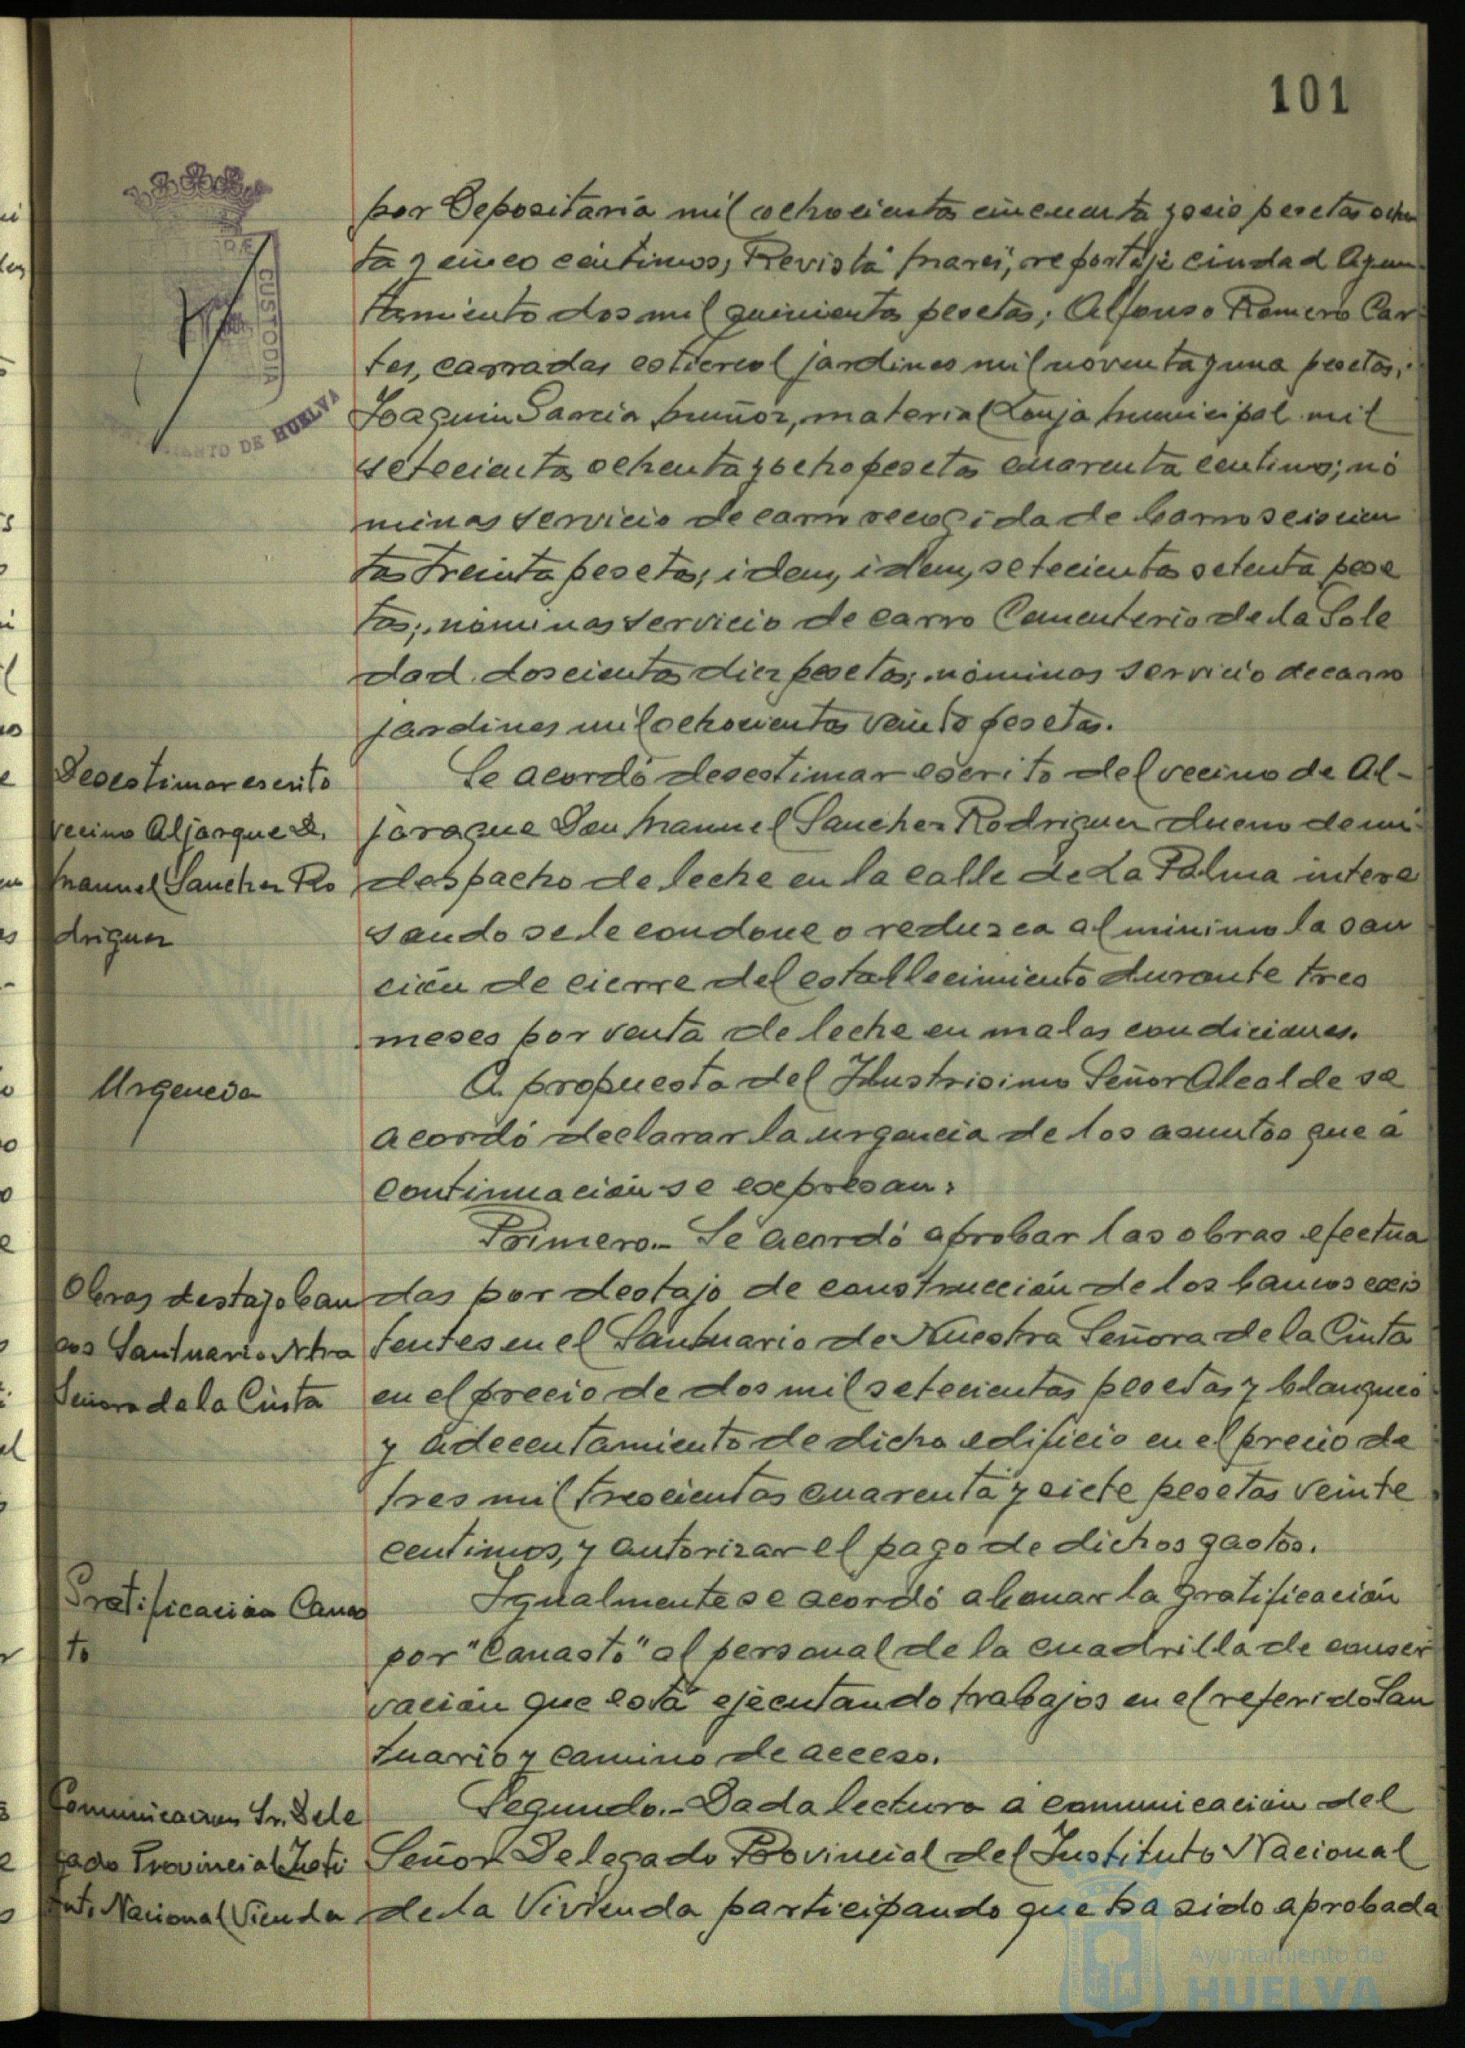 101
por Depositaría mil ochocientas cincuenta y seis pesetas ochen
ta y cinco céntimos; Revista reportaje ciudad Ayun
tamiento dos mil quinientas pesetas; Alfonso Romero Cor
tes, carradas estiercol jardines mil noventa y una pesetas;
Joaquin Garcia Muñoz, material Lonja Municipal mil
setecientas ochenta y ocho pesetas cuarenta centimos; nó
minas servicio de carro recogida de barro seiscien
tas treinta pesetas; idem, idem, setecientas setenta pese
tas; nóminas servicio de carro Cementerio de la Sole
dad doscientas diez pesetas; nóminas servicio de carro
jardines mil ochocientas veinte pesetas.
Desestimar escrito
vecino Aljarque D.
Manuel Sanchez Ro
driguez
Se acordó desestimar escrito del vecino de Al-
jaraque Don Manuel Sanchez Rodriguez dueño de un
despacho de leche en la calle de La Palma intere
sando se le condone o reduzca al minimo la san
ción de cierre del establecimiento durante tres
meses por venta de leche en malas condiciones.
Urgencia
A propuesta del Ilustrisimo Señor Alcalde se
acordó declarar la urgencia de los asuntos que á
continuación se expresan:
Obras destajo ban
cos Santuario Ntra
Señora de la Cinta
Primero.- Se acordó aprobar las obras efectua
das por destajo de construcción de los bancos exis
tentes en el Santuario de Nuestra Señora de la Cinta
en el precio de dos mil setecientas pesetas y blanqueo
y adecentamiento de dicho edificio en el precio de
tres mil trescientas cuarenta y siete pesetas veinte
centimos, y autorizar el pago de dichos gastos.
Gratificación Canas
to
Igualmente se acordó abonar la gratificación
por "Canasto" al personal de la cuadrilla de conser
vación que está ejecutando trabajos en el referido San
tuario y camino de acceso.
Comunicacion Sr. Dele
gado Provincial Insti
tuto Nacional Vivienda
Segundo.- Dada lectura á comunicación del
Señor Delegado Provincial del Instituto Nacional
de la Vivienda participando que ha sido aprobada
CUSTODIA
DE HUELVA
Ayuntamiento de
HUELVA